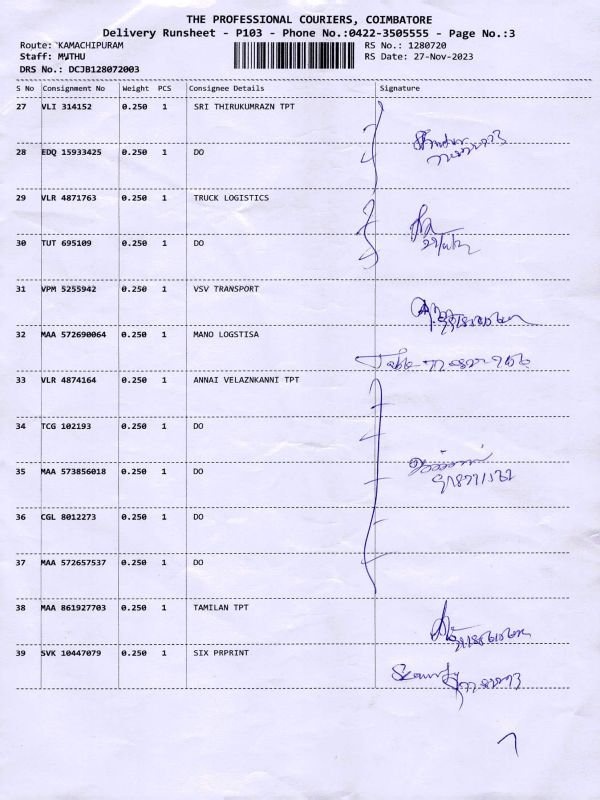 THE PROFESSIONAL COURIERS, COIMBATORE
Delivery Runsheet - P103 - Phone No.:0422-3505555 - Page No.:3
Route: KAMACHIPURAM RS No.: 1280720
Staff: MUTHU RS Date: 27-Nov-2023
DRS No.: DCJB128072003
S No Consignment No Weight PCS Consignee Details Signature
27 VLI 314152 0.250 1 SRI THIRUKUMRAZN TPT
28 EDQ 15933425 0.250 1 DO
29 VLR 4871763 0.250 1 TRUCK LOGISTICS
30 TUT 695109 0.250 1 DO
31 VPM 5255942 0.250 1 VSV TRANSPORT
32 MAA 572690064 0.250 1 MANO LOGSTISA
33 VLR 4874164 0.250 1 ANNAI VELAZNKANNI TPT
34 TCG 102193 0.250 1 DO
35 MAA 573856018 0.250 1 DO
36 CGL 8012273 0.250 1 DO
37 MAA 572657537 0.250 1 DO
38 MAA 861927703 0.250 1 TAMILAN TPT
39 SVK 10447079 0.250 1 SIX PRPRINT
Security